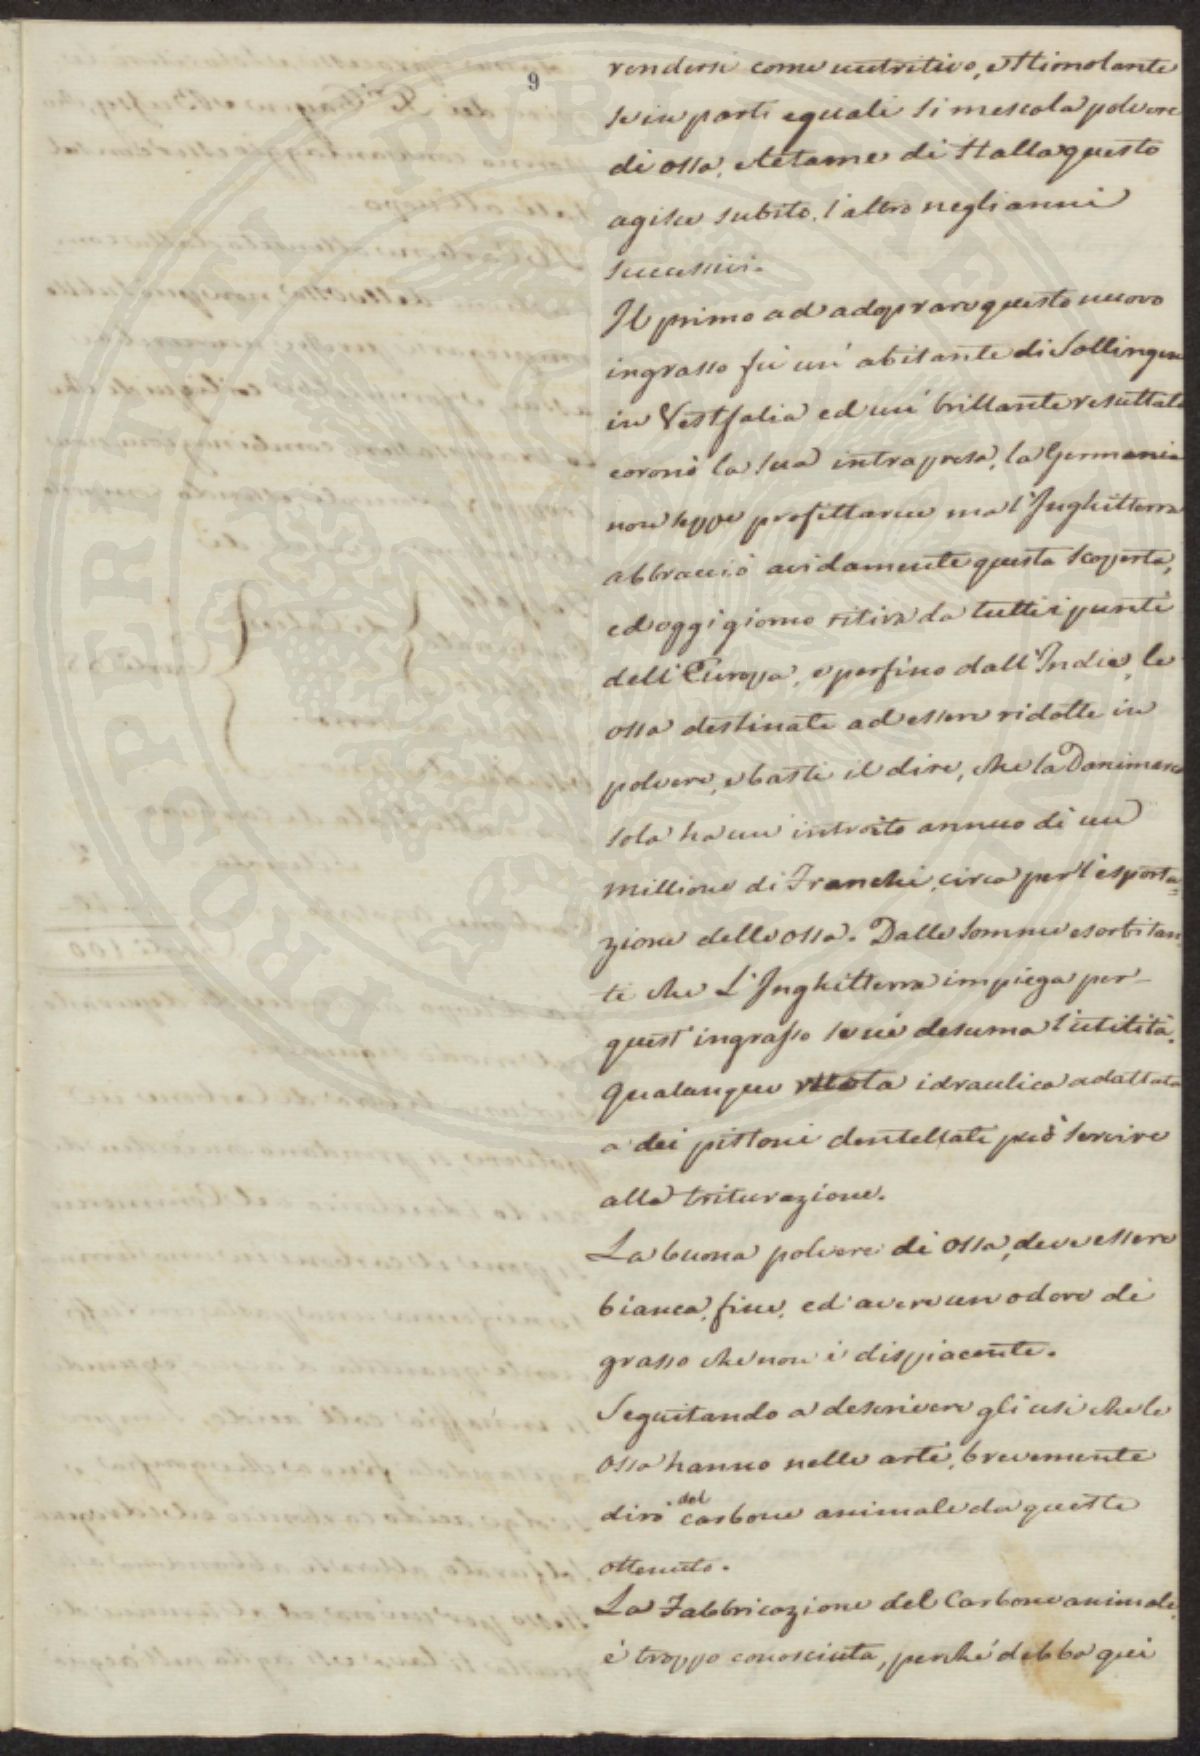 9
rendersi come nutritivo, e stimolante
se in parti eguali si mescola polvere
di ossa, e letame di stalla questo
agisce subito, l'altro negli anni
successivi.
Il primo ad adoprare questo nuovo
ingrasso fù un' abitante di Sollingen
in Vestfalia ed un' brillante resultato
coronò la sua intrapresa, la Germania
non seppe profittarne ma l'Inghilterra
abbracciò avidamente questa scoperta,
ed oggi giorno ritira da tutti i punti
dell'Europa, e perfino dall'Indie, le
ossa destinate ad essere ridotte in
polvere, e basti il dire, che la Danimarca
sola ha un' introito annuo di un
millione di Franchi circa per l'esporta=
zione delle ossa. Dalle somme esorbitan
ti che L'Inghilterra impiega per
quest'ingrasso se ne desuma l'utilità.
Qualunque ruota idraulica adattata
a dei pistoni dentellati può servire
alla triturazione.
La buona polvere di ossa, deve essere
bianca, fine, ed avere un odore di
grasso che non è dispiacente.
Seguitando a descrivere gli usi che le
ossa hanno nelle arti, brevemente
dirò del carbone animale da queste
ottenuto.
La Fabbricazione del Carbone animale
è troppo conosciuta, perché debba qui
PROSPERITATI PUBLICAE AUGENDAE